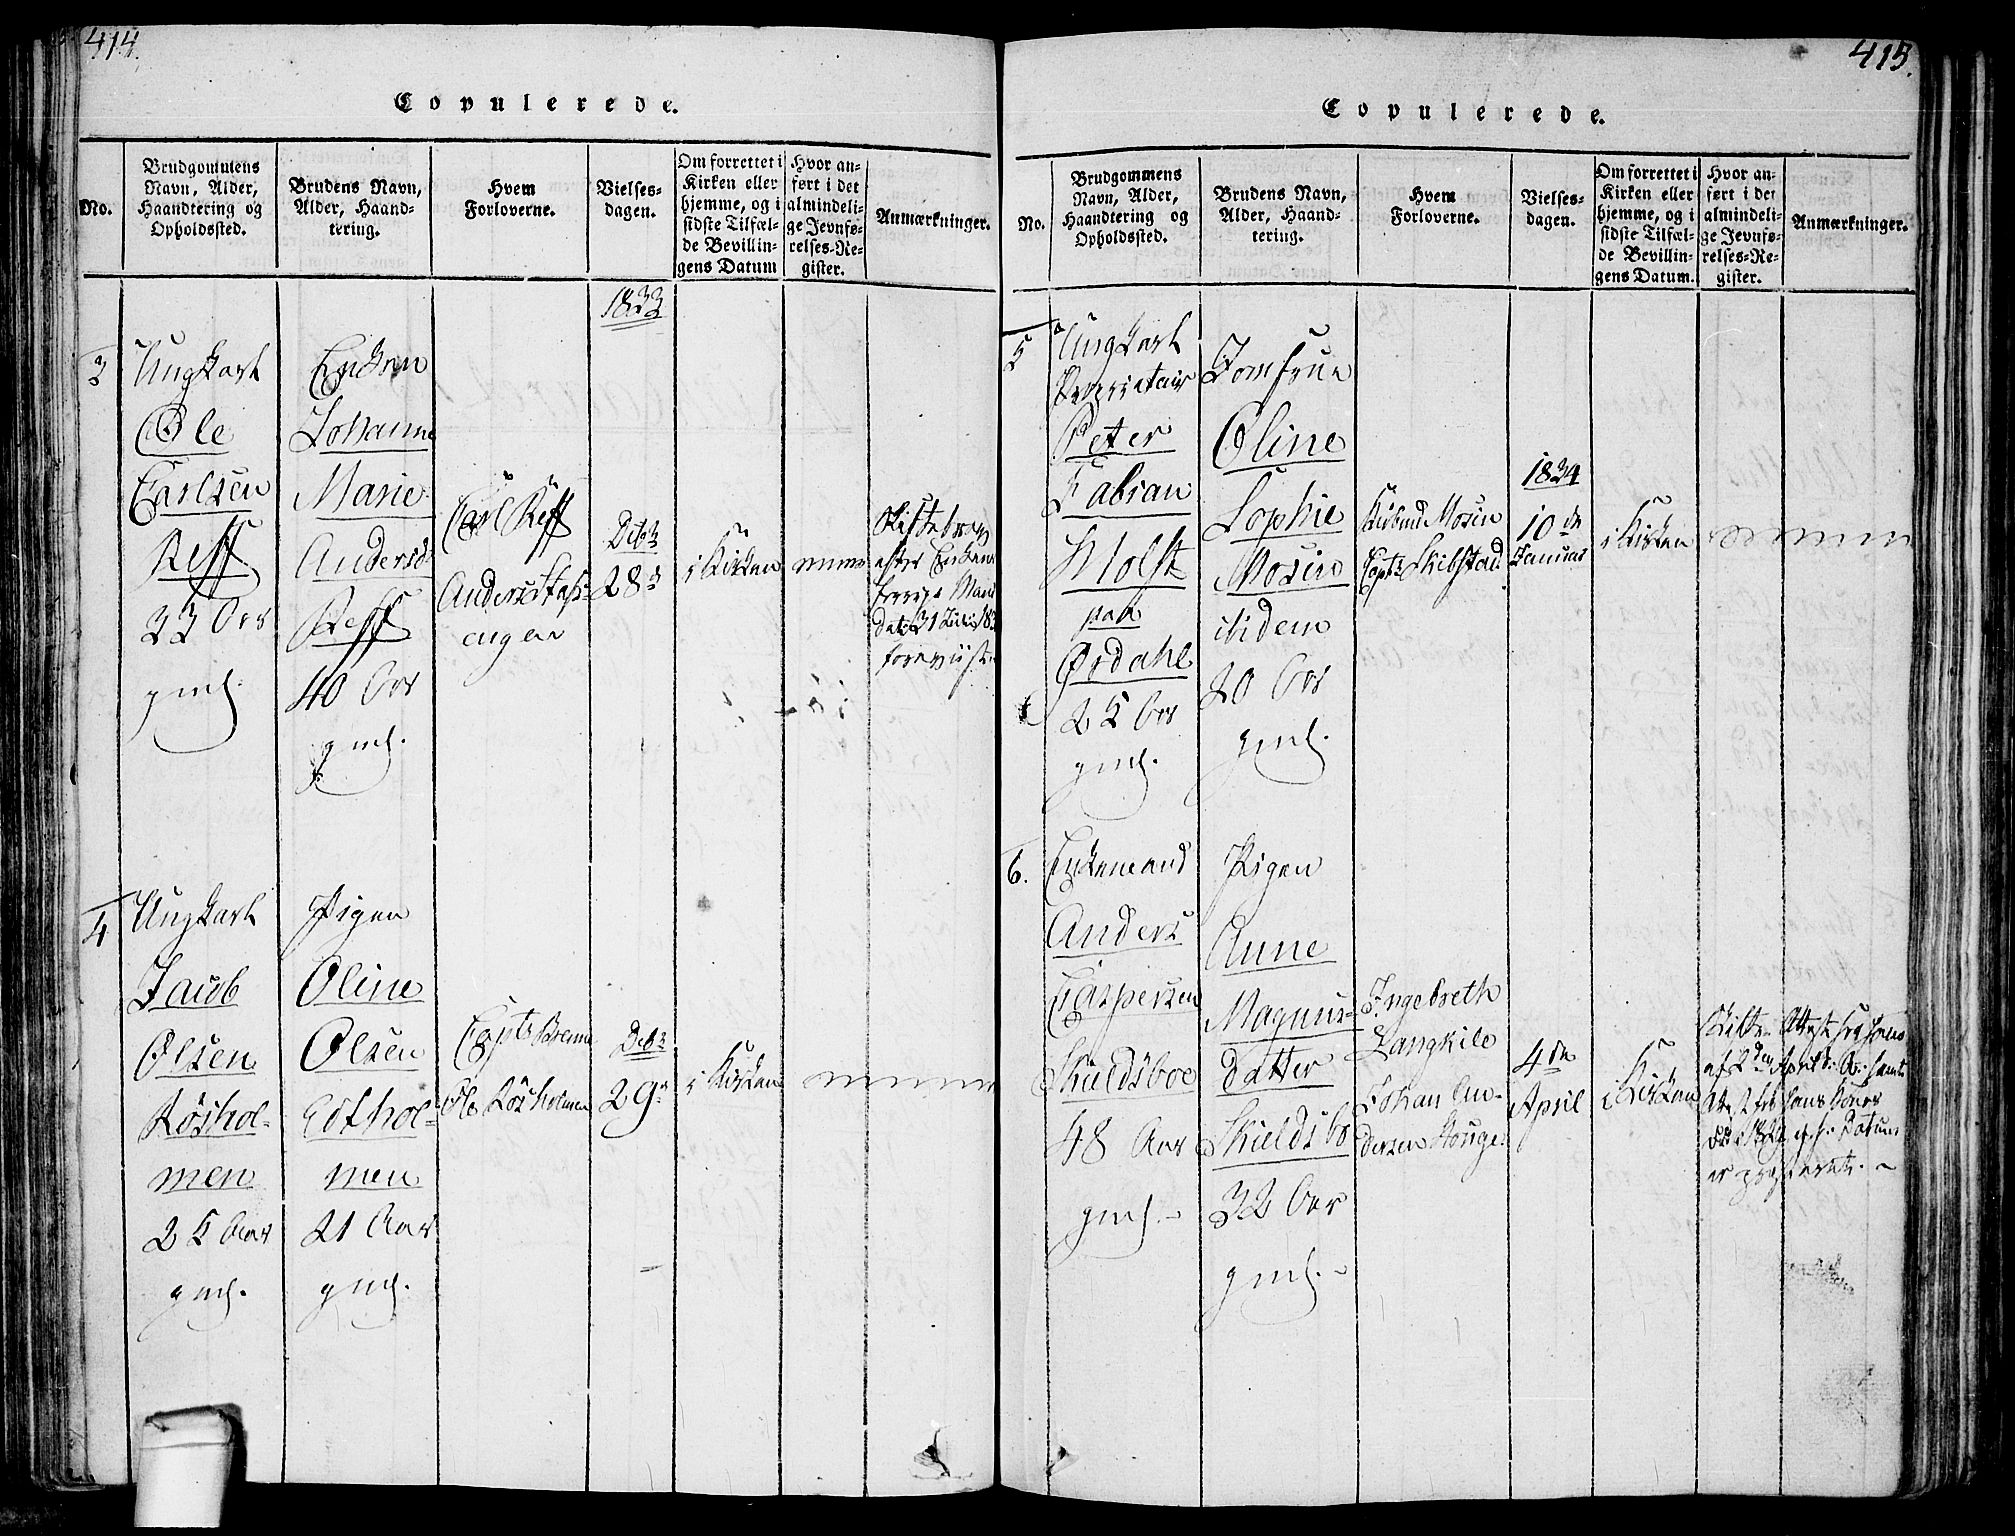 414.
Copulerede.
No.
Brudgommens
Navn, Alder,
Haandtering og
Opholdssted.
Brudens Navn,
Alder, Haand-
tering.
Hvem
Forloverne.
Vielses-
dagen.
Om forrettet i
Kirken eller
hjemme, og i
sidste Tilfæl-
de Bevillin-
gens Datum
Hvor an-
ført i det
almindeli-
ge Jevnfø-
relses-Re-
gister.
Anmærkninger.
1833
3
Ungkarl
Ole
Carlsen
Reff
33 Aar
gml.
Enken
Johanne
Marie
Andersd:
Reff
40 Aar
gml.
Carl Reff
Anders
engen
Decbr
28d
i Kirken
Skiftebrev
efter Enkens
forrige Mand
dat. 31 Juli
foreviist
4
Ungkarl
Jacob
Olsen
Røshol-
men
25 Aar
gml.
Pigen
Oline
Olsen
Edthol-
men
21 Aar
gml.
Capt:
Ole Røsholmen
Decbr
29d
i Kirken
415.
Copulerede.
No.
Brudgommens
Navn, Alder,
Haandtering og
Opholdssted.
Brudens Navn,
Alder, Haand-
tering.
Hvem
Forloverne.
Vielses-
dagen.
Om forrettet i
Kirken eller
hjemme, og i
sidste Tilfæl-
de Bevillin-
gens Datum.
Hvor an-
ført i det
almindeli-
ge Jevnfø-
relses-Re-
gister.
Anmærkninger.
5
Ungkarl
Proprietair
Peter
Fabian
Holst
paa
Ørdahl
25 Aar
gml.
Jomfrue
Oline
Sophie
Mosin
ibidem
20 Aar
gml.
Mosin
Capt: Skibstad
1834
10de
Januar
i Kirken
6.
Enkemand
Anders
Caspersen
Skieldsboe
48 Aar
gml.
Pigen
Anne
Magnus-
datter
Skieldsbo
32 Aar
gml.
Ingebreth
Langkile
Johan An-
dersen Houge
4de
April
i Kirken
Skifte-Attest fra
af 2den April d: A: samt
Attest
er præsteret.